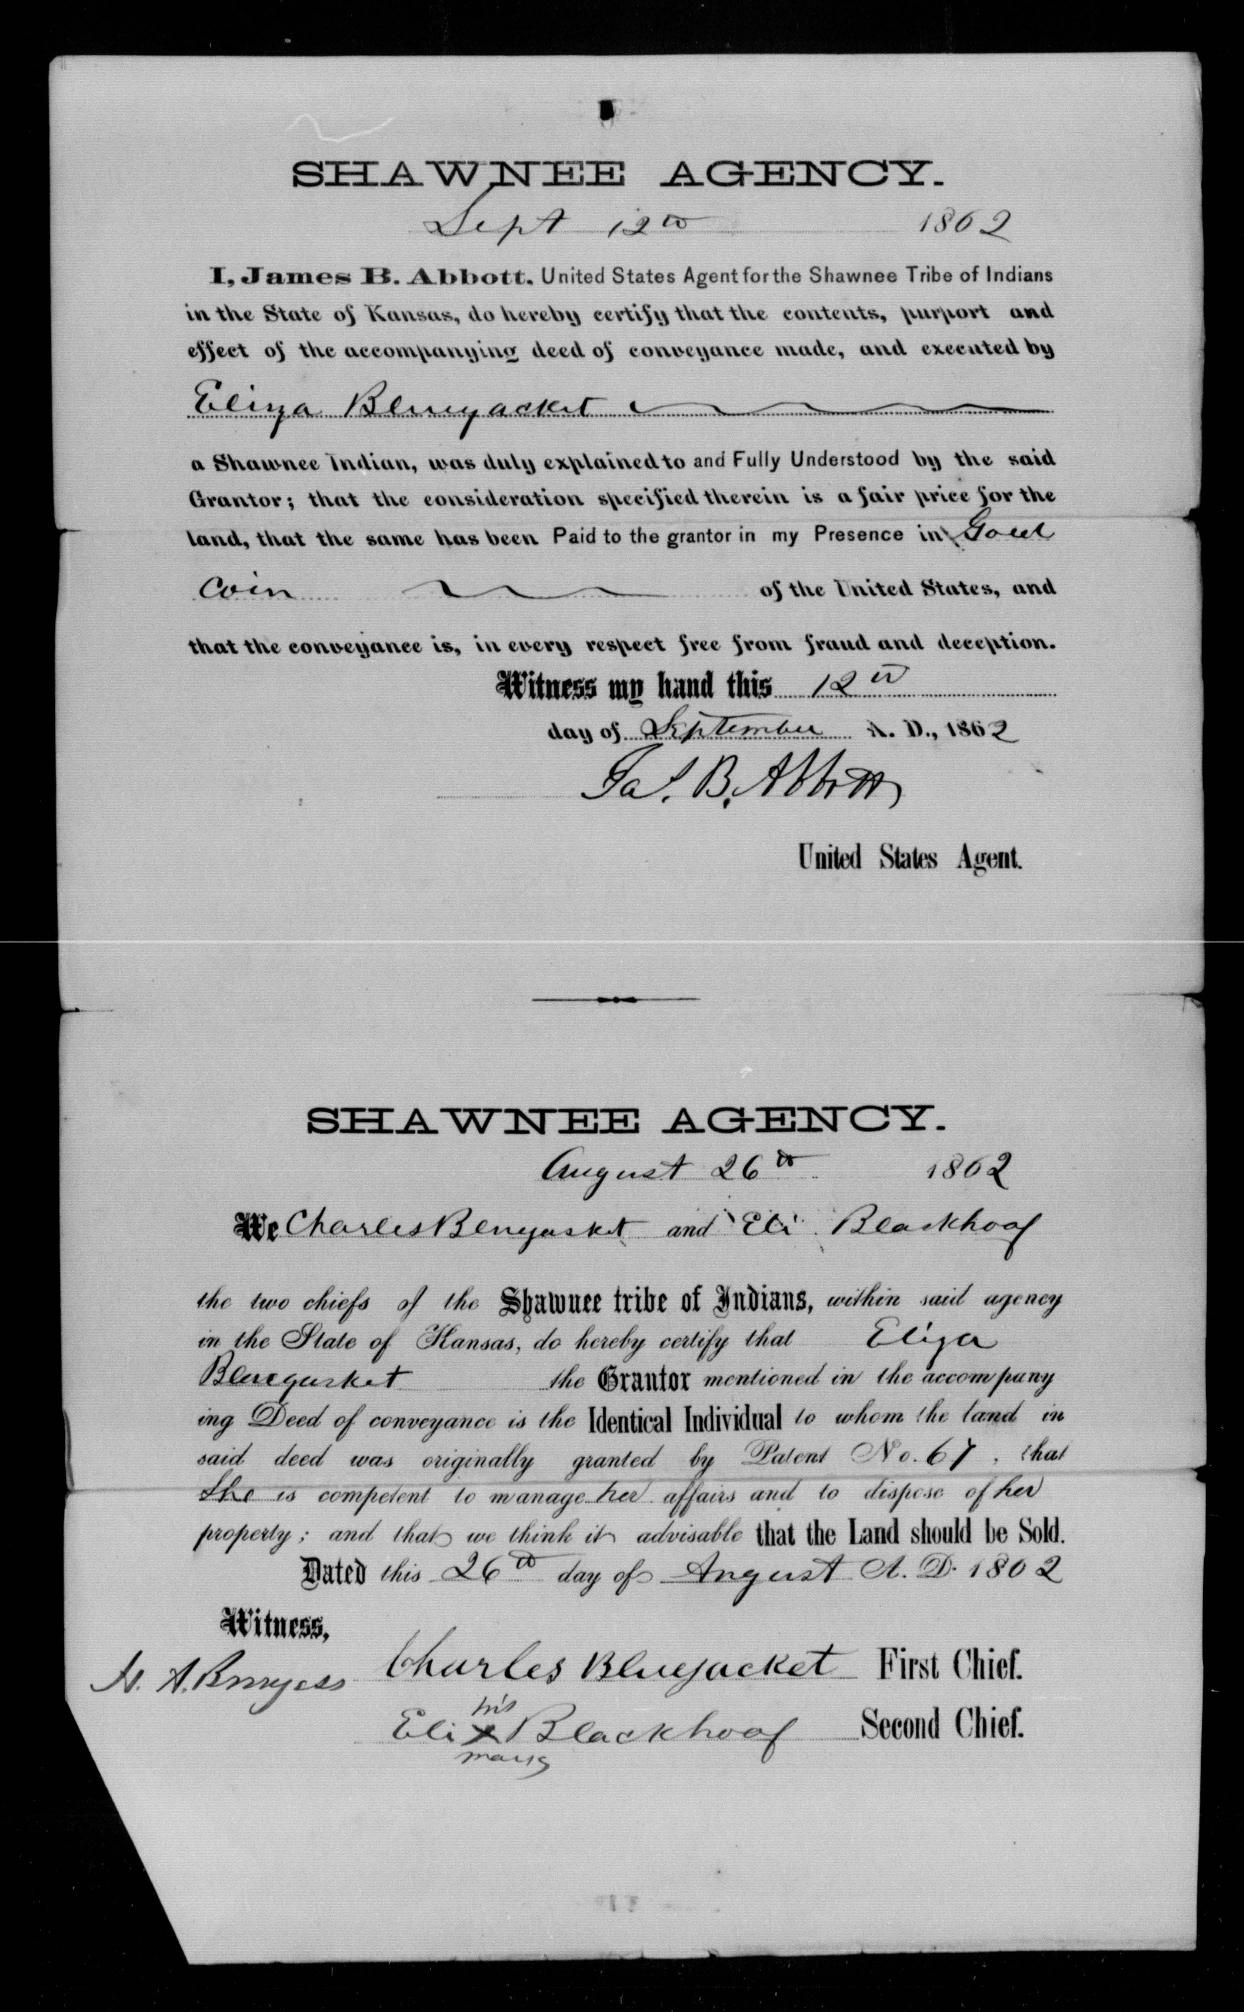 SHAWNEE AGENCY.
Sept 12th 1862
I, James B. Abbott, United States Agent for the Shawnee Tribe of Indians
in the State of Kansas, do hereby certify that the contents, purport and
effect of the accompanying deed of conveyance made, and executed by
Eliza Bluejacket
a Shawnee Indian, was duly explained to and Fully Understood by the said
Grantor; that the consideration specified therein is a fair price for the
land, that the same has been Paid to the grantor in my Presence in Gold
Coin of the United States, and
that the conveyance is, in every respect free from fraud and deception.
Witness my hand this 12th
day of September A. D., 1862
Jas. B. Abbott
United States Agent.
SHAWNEE AGENCY.
August 26th 1862
We Charles Bluejacket and Eli Blackhoof
the two chiefs of the Shawnee tribe of Indians, within said agency
in the State of Kansas, do hereby certify that Eliza
Bluejacket the Grantor mentioned in the accompany
ing Deed of conveyance is the Identical Individual to whom the land in
said deed was originally granted by Patent No. 67, that
She is competent to manage her affairs and to dispose of her
property; and that we think it advisable that the Land should be Sold.
Dated this 26th day of August A. D. 1862
Witness,
A. Burgess Charles Bluejacket First Chief.
his
Eli X Blackhoof Second Chief.
mark